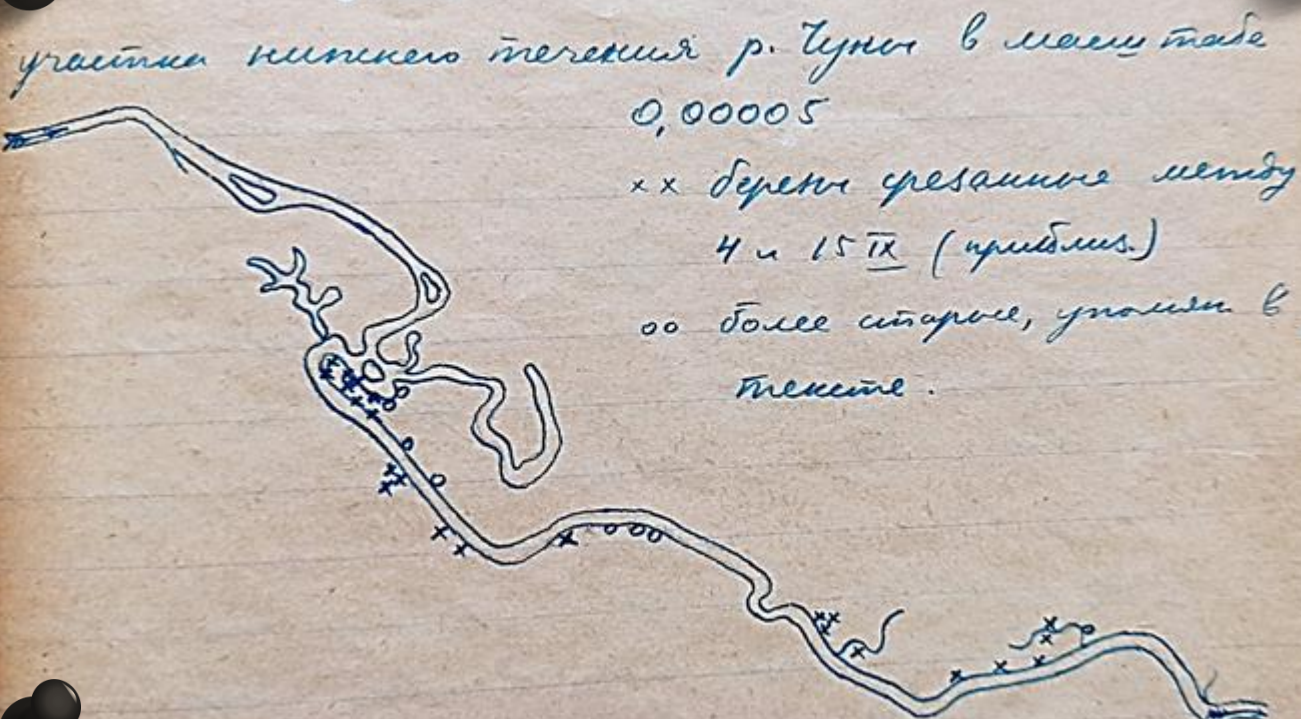 участка нижнего течения р. Чуны в масштабе
0,00005
×× березы срезанные между
4 и 15 IX (приблиз.)
оо более старые, упомян. в
тексте.